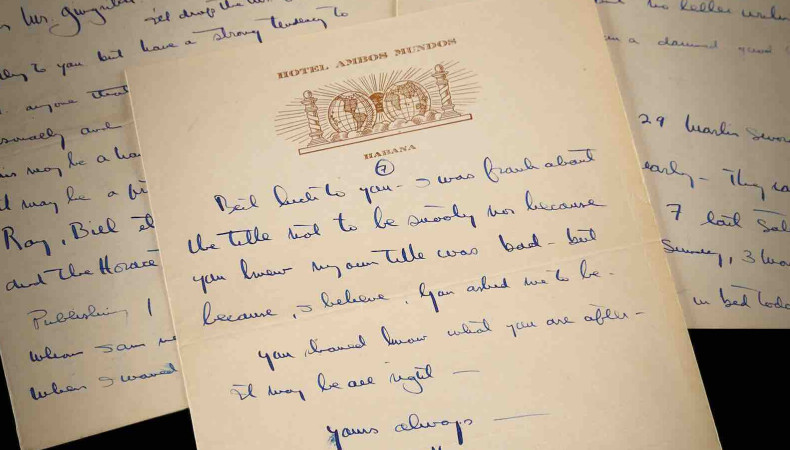 Mr. Gingrich
I'll drop the
to you but have a strong tendency to
anyone that
personally and
may be a
it may be a
Ray, Bill
and the Horace
Publishing
whom I am
when I
HOTEL AMBOS MUNDOS
HABANA
7
Best luck to you - I was frank about
the title not to be snooty nor because
you knew my own title was bad - but
because, I believe, you asked me to be.
you should know what you are after -
it may be all right -
Yours always -
no letter
a damned good
29 Marlin
early - They
7 last
Sunday, 3
in bed today